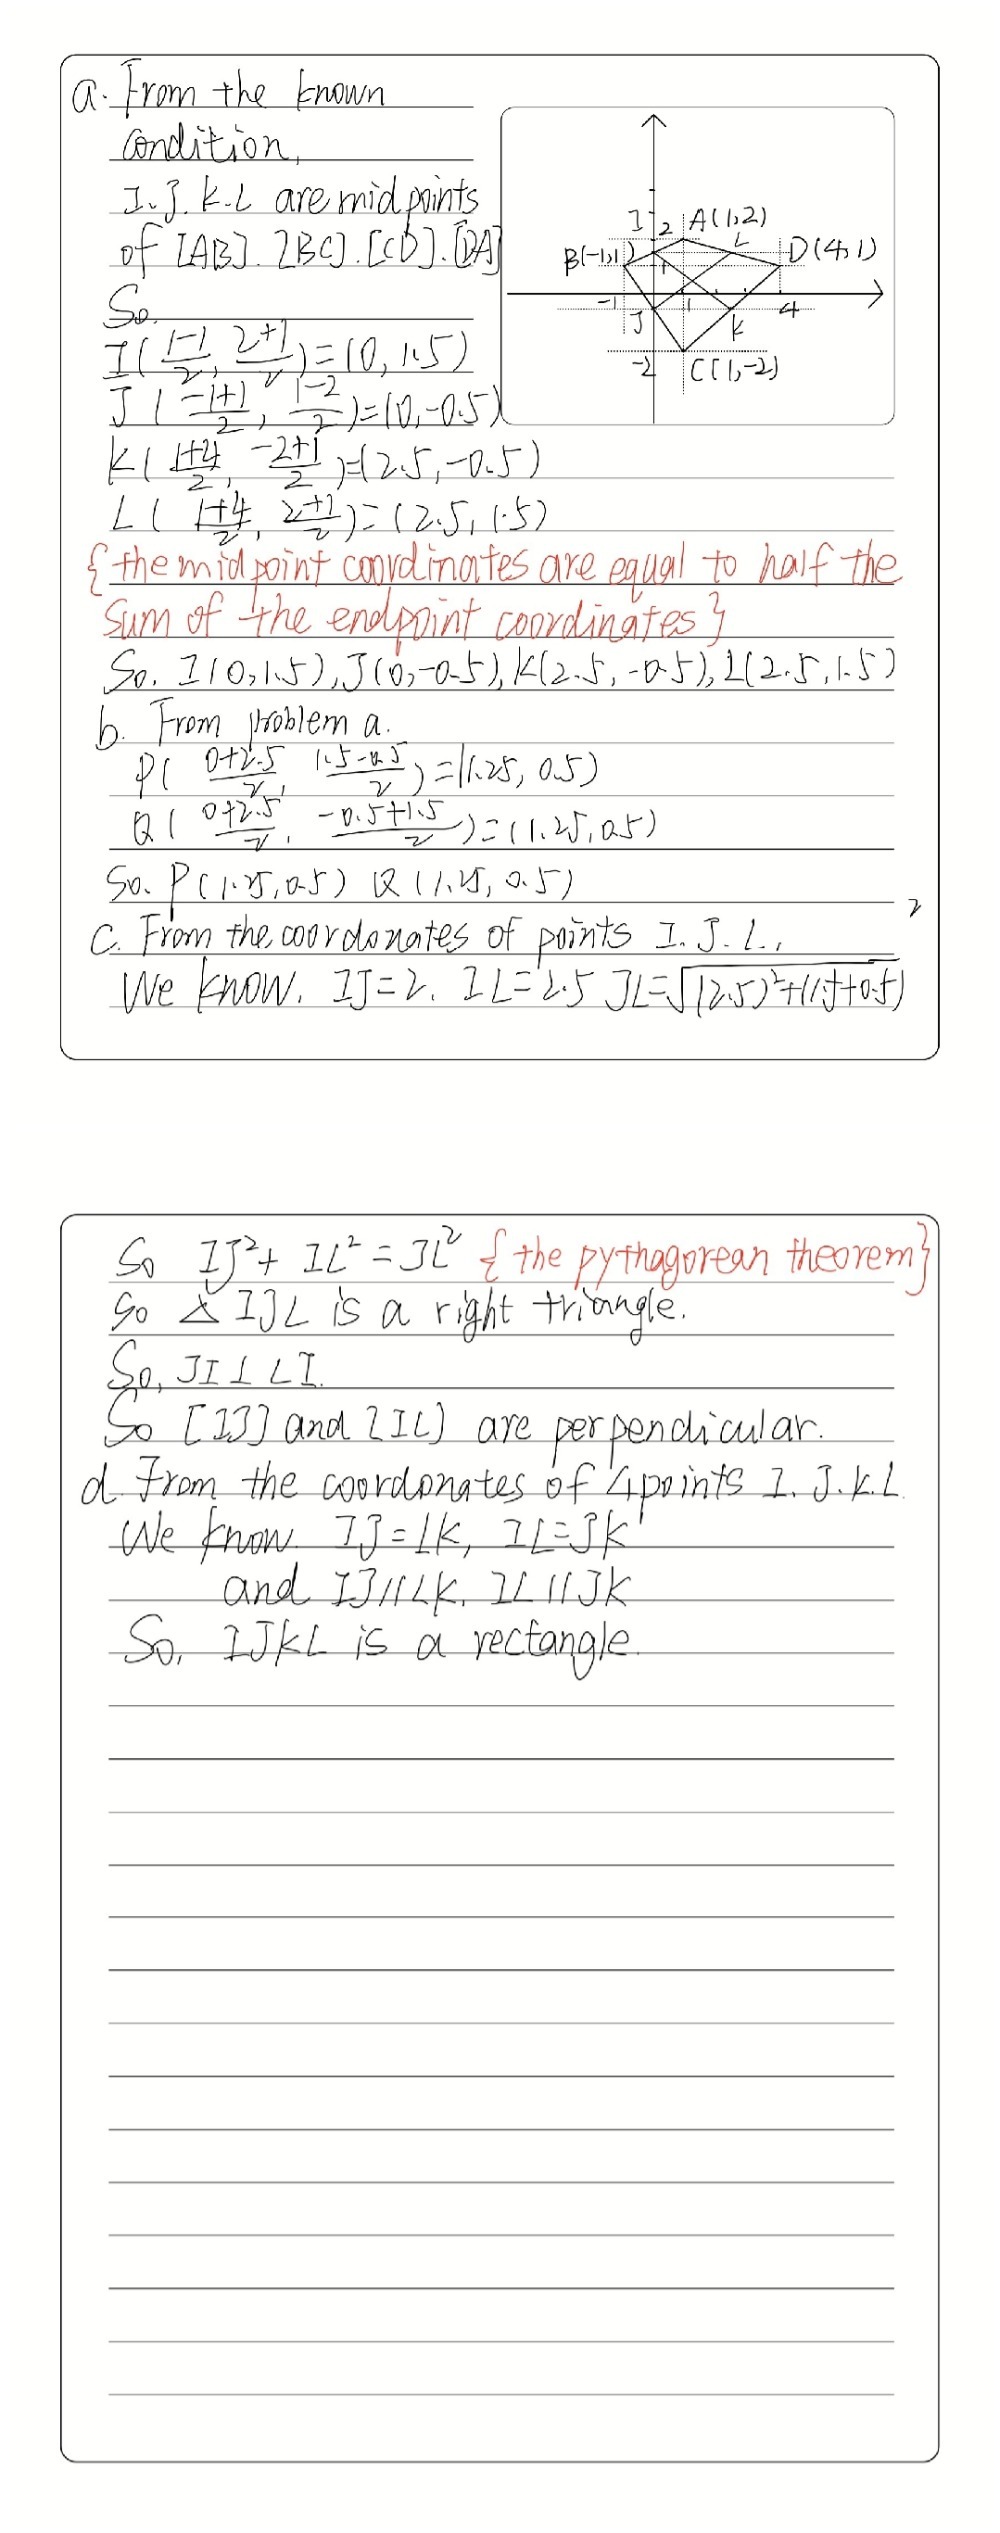 a. From the known
condition,
I. J. K. L are midpoints
of [AB]. [BC]. [CD]. [DA]
So.
I(\frac{1-1}{2}, \frac{2+1}{2})=(0, 1.5)
J(\frac{-1+1}{2}, \frac{1-2}{2})=(0,-0.5)
K(\frac{1+4}{2}, \frac{-2+1}{2})=(2.5,-0.5)
L(\frac{1+4}{2}, \frac{2+1}{2})=(2.5, 1.5)
I 2 A(1,2)
B(-1,1) 1 L D(4,1)
-1 J 1 K 4
-2 C(1,-2)
{the midpoint coordinates are equal to half the
sum of the endpoint coordinates}
So. I(0,1.5), J(0,-0.5), K(2.5,-0.5), L(2.5,1.5)
b. From problem a.
P(\frac{0+2.5}{2}, \frac{1.5-0.5}{2})=(1.25, 0.5)
Q(\frac{0+2.5}{2}, \frac{-0.5+1.5}{2})=(1.25,0.5)
So. P(1.25,0.5) Q(1.25, 0.5)
c. From the coordonates of points I. J. L.
We know. IJ=2. IL=2.5 JL=\sqrt{(2.5)^2+(1.5+0.5)^2}
So IJ²+ IL² = JL² {the pythagorean theorem}
So △ IJL is a right triangle.
So, JI⊥LI.
So [IJ] and [IL] are perpendicular.
d. From the coordonates of 4points I. J. K. L.
We know. IJ=LK, IL=JK
and IJ//LK, IL//JK
So, IJKL is a rectangle.